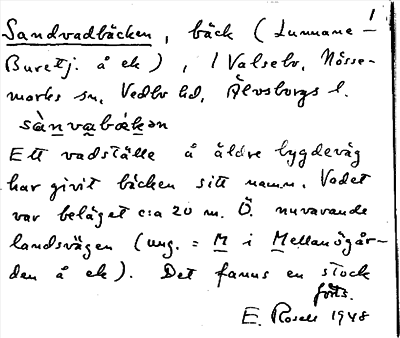 1
Sandvadbäcken, bäck (Lunnane-
Buretj. å ek), i Valsebo, Nösse-
marks sn, Vedbo hd, Älvsborgs l.
sànvabäkən
Ett vadställe å äldre bygdeväg
har givit bäcken sitt namn. Vadet
var beläget c:a 20 m. Ö. nuvarande
landsvägen (ung. = M i Mellanögår-
den å ek). Det fanns en stock
forts.
E. Rosell 1948